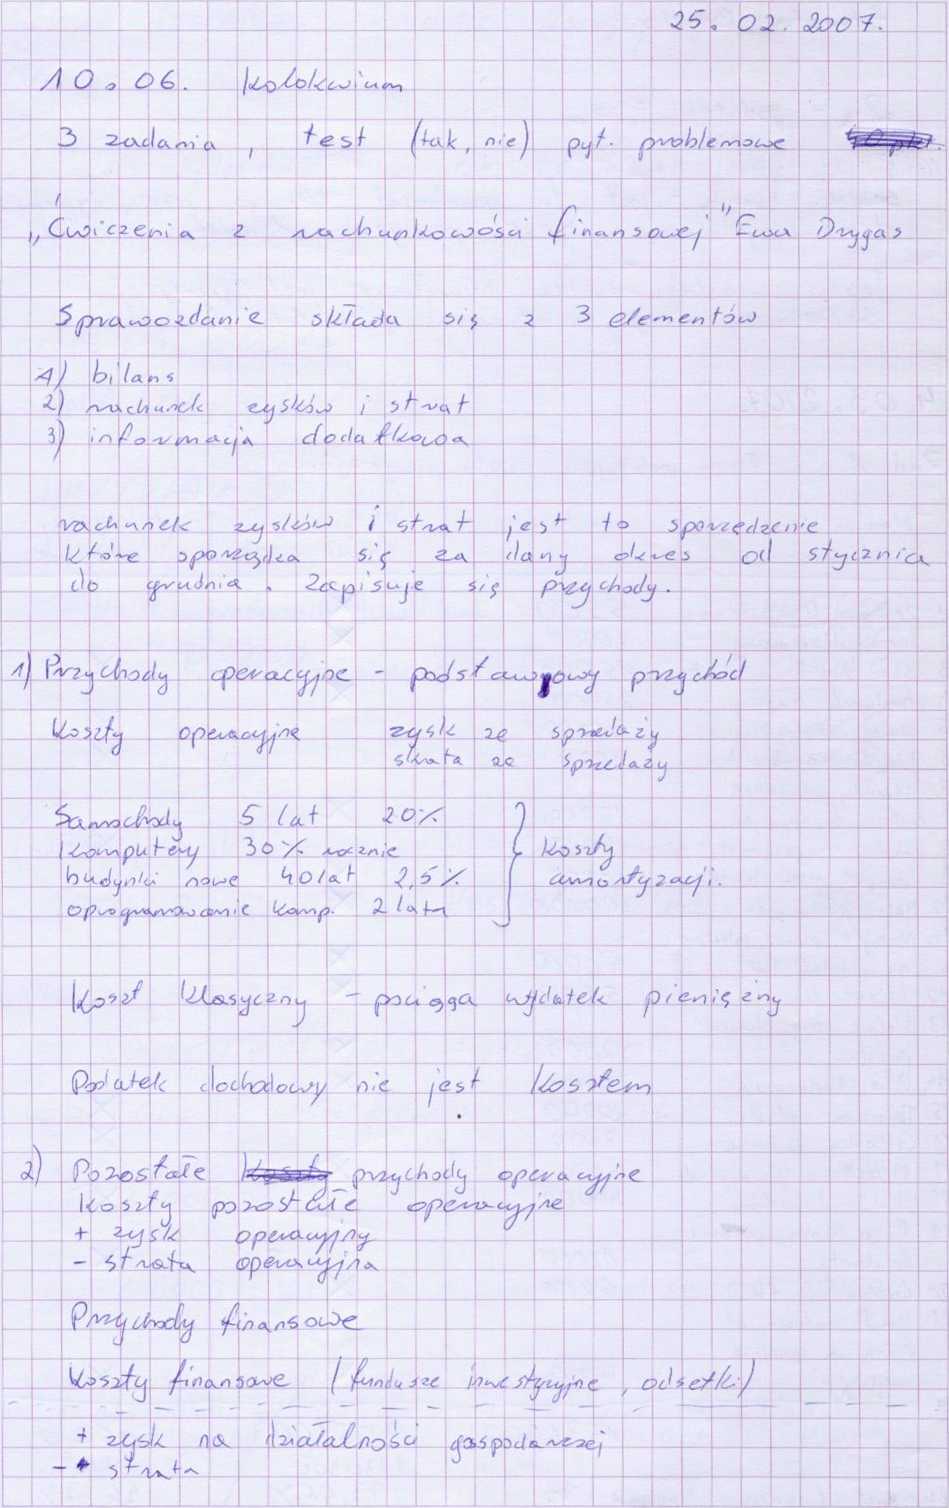 25. 02. 2007.
10.06. kolokwium
3 zadania, test (tak, nie) pyt. problemowe
„Ćwiczenia z rachunkowości finansowej" Ewa Drygas
Sprawozdanie składa się z 3 elementów
1) bilans
2) rachunek zysków i strat
3) informacja dodatkowa
rachunek zysków i strat jest to sporzedzenie
które sporządza się za dany okres od stycznia
do grudnia. Zapisuje się przychody.
1) Przychody operacyjne - podstawowy przychód
Koszty operacyjne zysk ze sprzedaży
strata ze sprzedaży
Samochody 5 lat 20%
Komputery 30% rocznie
budynki nowe 40 lat 2,5%
oprogramowanie komp. 2 lata
} koszty
amortyzacji.
Koszt klasyczny - pociąga wydatek pieniężny
Podatek dochodowy nie jest kosztem
2) Pozostałe przychody operacyjne
Koszty pozostałe operacyjne
+ zysk operacyjny
- strata operacyjna
Przychody finansowe
Koszty finansowe (fundusze inwestycyjne, odsetki)
+ zysk na działalności gospodarczej
- strata